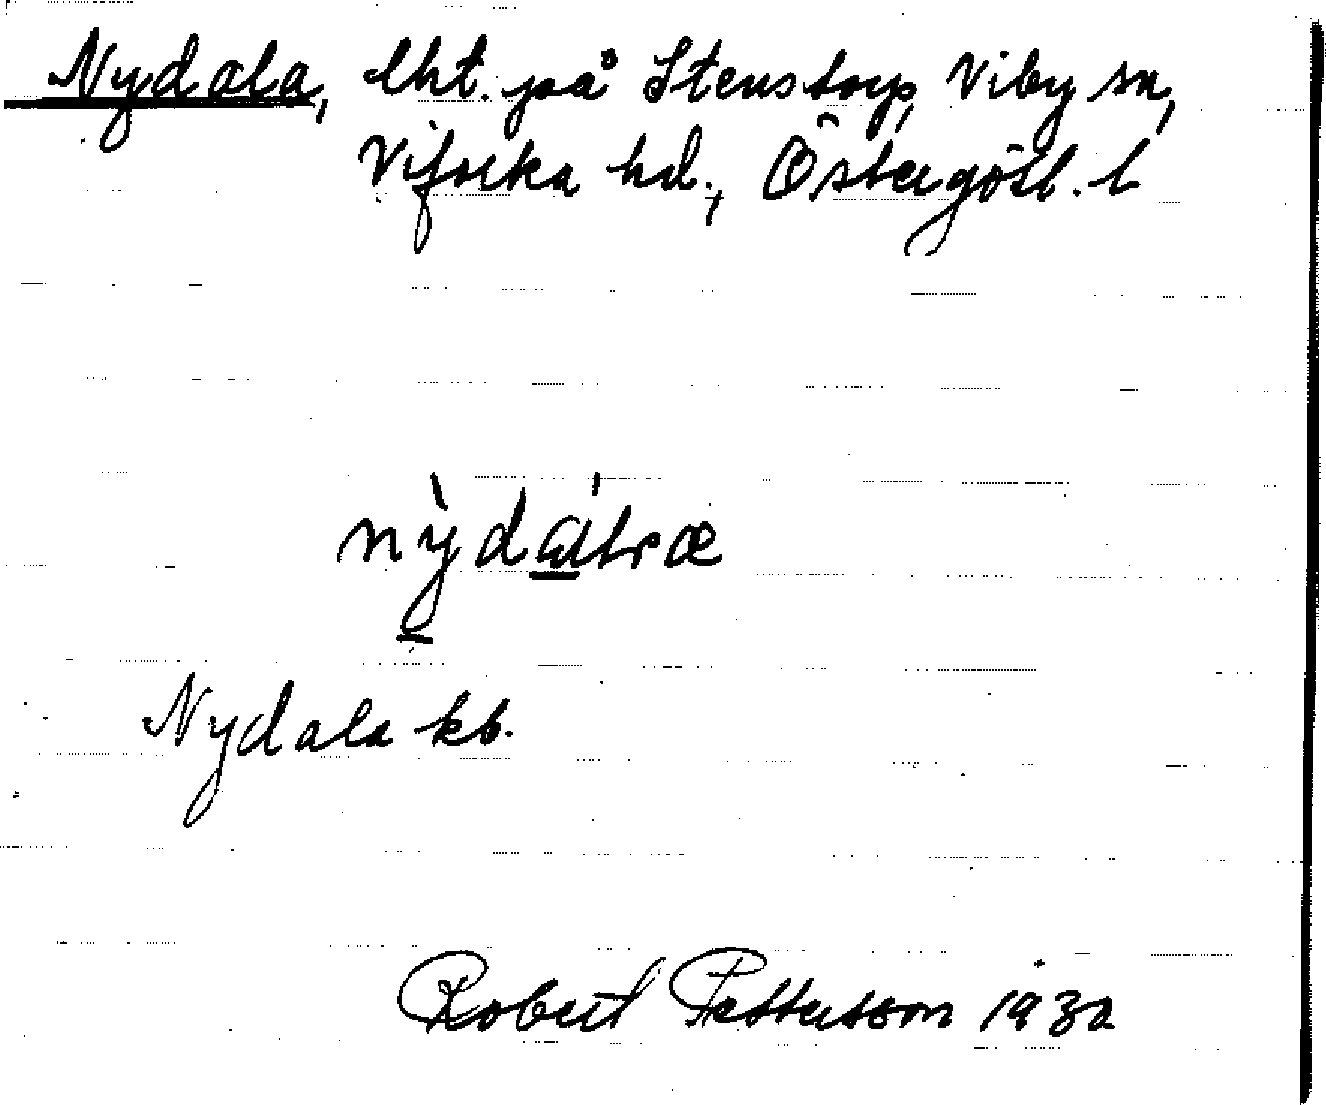 Nydala, lht. på Stenstorp, Viby sn,
Vifolka hd., Östergötl. l
Nydala kb.
Robert Pettersson 1932